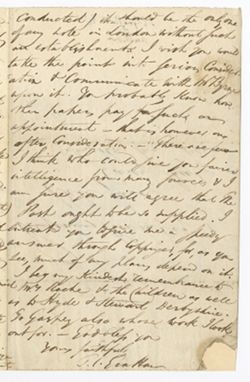 conducted) it should be the only one
of any note in London without such
an establishment. I wish you would
take the point into serious Consider
ation & Communicate with Mr Byrne
upon it. You probably know how
other papers pay for such an
appointment - that is however an
after Consideration. - There are
I think who could give you foreign
intelligence from many sources & I
am sure you will agree that the
Post ought to be so supplied. I
intreat you to give me a speedy
answer through as you
see, much of my plans depend on it.
I beg my kindest remembrance to
Mrs Roche & the Children as well
as to Hyde & Stewart Derbyshire.
To Gaspey also whose work I look
out for. - God bless you
Yours faithfully